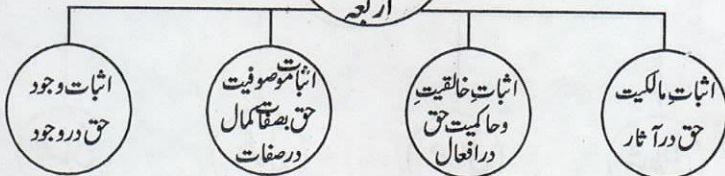 اربعہ
اثباتِ مالکیت
حق در آثار
اثباتِ خالقیتِ
وحاکمیت حق
در افعال
اثبات موصوفیت
حق بصفات کمال
در صفات
اثبات وجود
حق در وجود